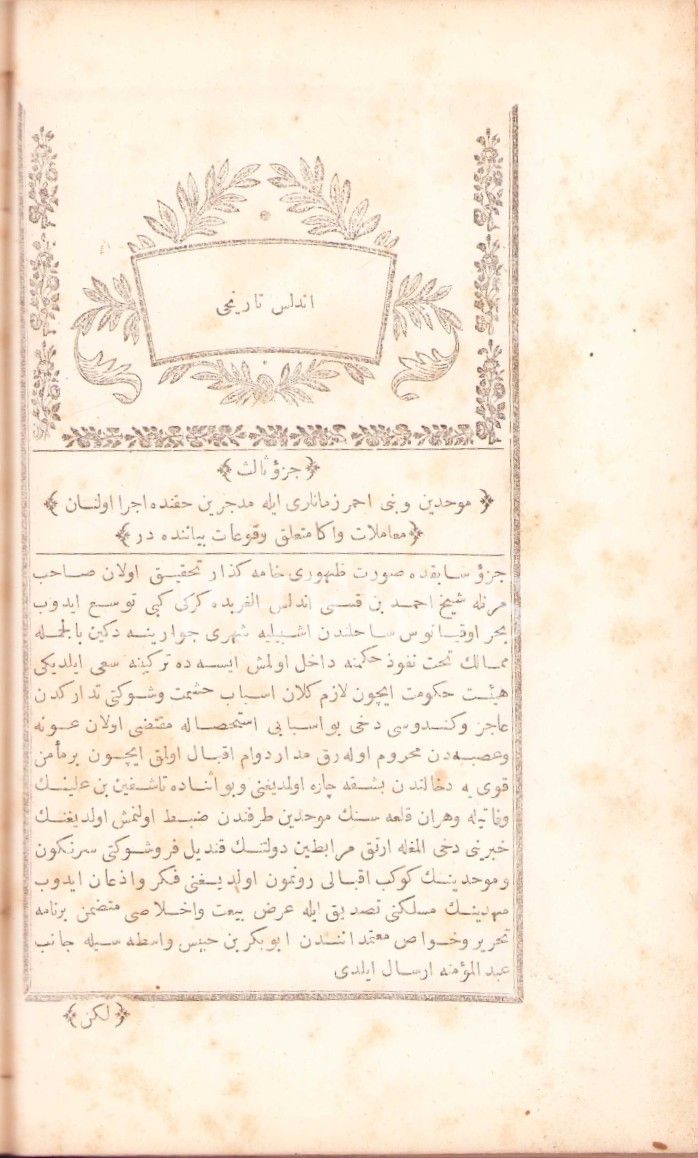 اندلس تاريخى
﴿ جزؤ ثالث ﴾
﴿ موحدين وبنى احمر زمانلرى ايله مدجرين حقنده اجرا اولنان ﴾
﴿ معاملات واكا متعلق وقوعات بياننده در ﴾
جزؤ سابقده صورت ظهورى خامه كذار تحقيق اولان صاحب
مرتله شيخ احمد بن قسى اندلس الغربده كركى كبى توسع ايدوب
بحر اوقيانوس ساحلندن اشبيليه شهرى جوارينه دكين بالجمله
ممالك تحت نفوذ حكمنه داخل اولمش ايسه ده تركينه سعى ايلديكى
هيئت حكومت ايچون لازم كلان اسباب حشمت وشوكتى تداركدن
عاجز وكندوسى دخى بو اسبابى استحصاله مقتضى اولان عونه
وعصبه دن محروم اوله رق مدار دوام اقبال اولمق ايچون بر مأمن
قوى يه دخالتدن بشقه چاره اولمديغنى وبو اثناده تاشفين بن علينك
وفاتيله وهران قلعه سنك موحدين طرفندن ضبط اولنمش اولديغنك
خبرنى دخى المغله ارتق مرابطين دولتنك قنديل فر وشوكتى سرنكون
وموحدينك كوكب اقبالى رونمون اوله جغنى فكر واذعان ايدوب
مهدينك مسلكنى تصديق ايله عرض بيعت واخلاصى متضمن برنامه
تحرير وخواص معتمداتندن ابوبكر بن حبيس واسطه سيله جانب
عبد المؤمنه ارسال ايلدى
﴿ لكن ﴾